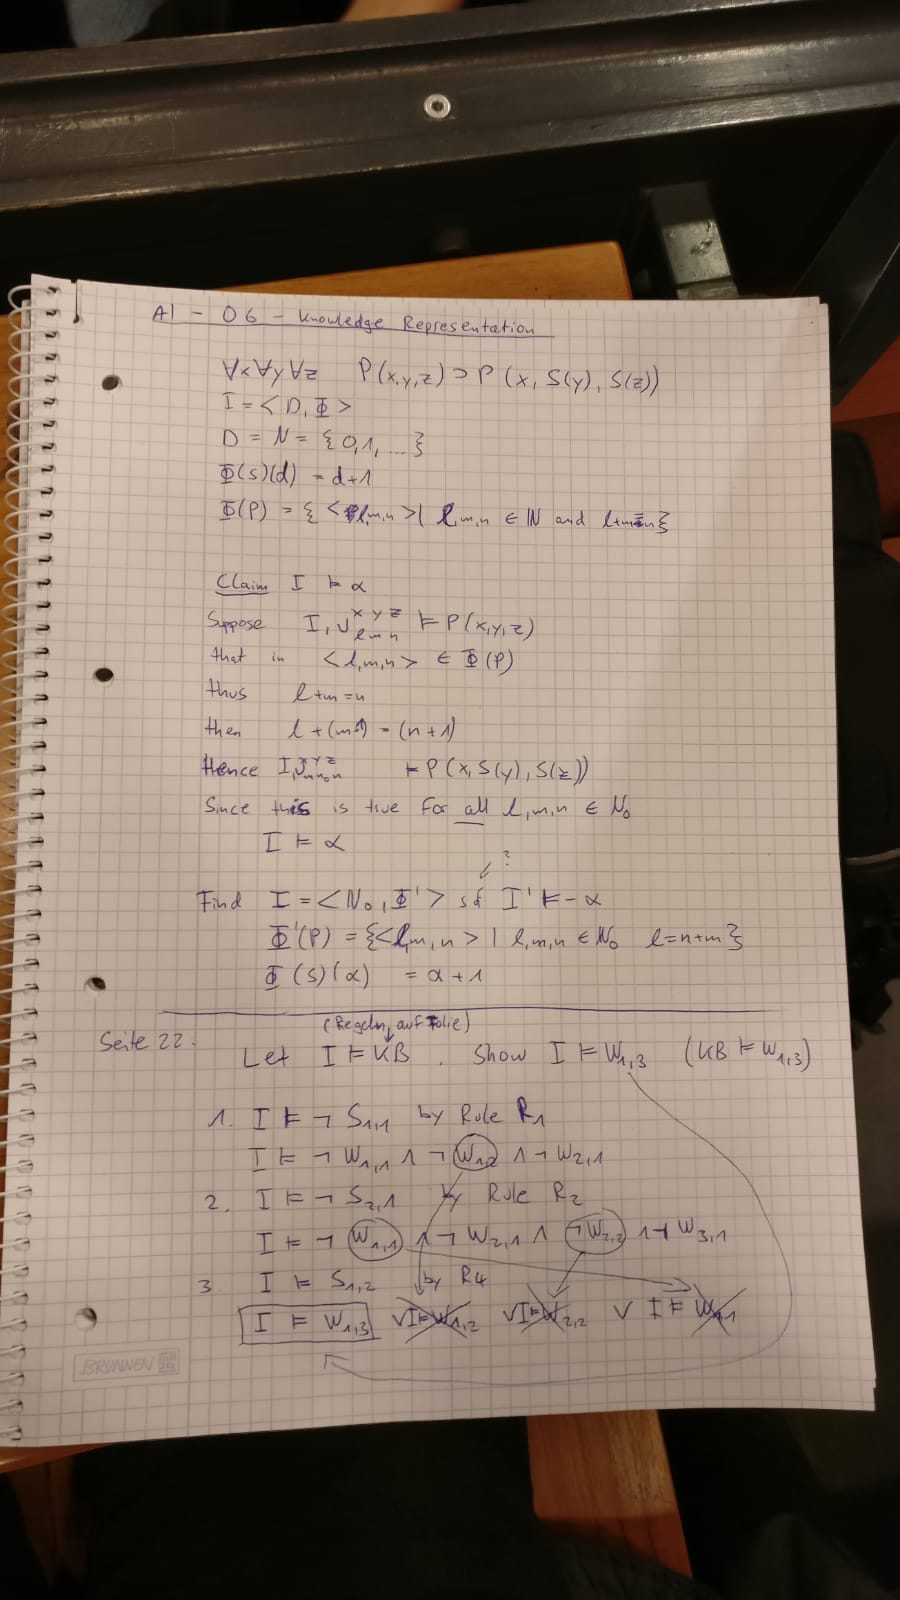 AI - 06 - Knowledge Representation
∀x∀y∀z P(x,y,z) ⊃ P(x, S(y), S(z))
I = <D, Φ>
D = N = {0,1, ...}
Φ(s)(d) = d+1
Φ(P) = { <l,m,n> | l,m,n ∈ N and l+m=n}
Claim I ⊨ α
Suppose I, ν x y z l m n ⊨ P(x,y,z)
that in <l,m,n> ∈ Φ(P)
thus l+m=n
then l+(m+1) = (n+1)
Hence I, x y z ⊨ P(x, S(y), S(z))
Since this is true for all l,m,n ∈ N₀
I ⊨ α
?
Find I = <N₀, Φ'> st I' ⊨ ¬ α
Φ'(P) = {<l,m,n> | l,m,n ∈ N₀ l=n+m}
Φ(s)(α) = α+1
(Regeln auf Folie)
Seite 22.
Let I ⊨ KB. Show I ⊨ W₁,₃ (KB ⊨ W₁,₃)
1. I ⊨ ¬ S₁,₁ by Rule R₁
I ⊨ ¬ W₁,₁ ∧ ¬ W₁,₂ ∧ ¬ W₂,₁
2. I ⊨ ¬ S₂,₁ by Rule R₂
I ⊨ ¬ W₁,₁ ∧ ¬ W₂,₁ ∧ ¬ W₂,₂ ∧ ¬ W₃,₁
3 I ⊨ S₁,₂ by R4
I ⊨ W₁,₃ ∨ I ⊨ W₁,₂ ∨ I ⊨ W₂,₂ ∨ I ⊨ W₁,₁
BRUNNEN